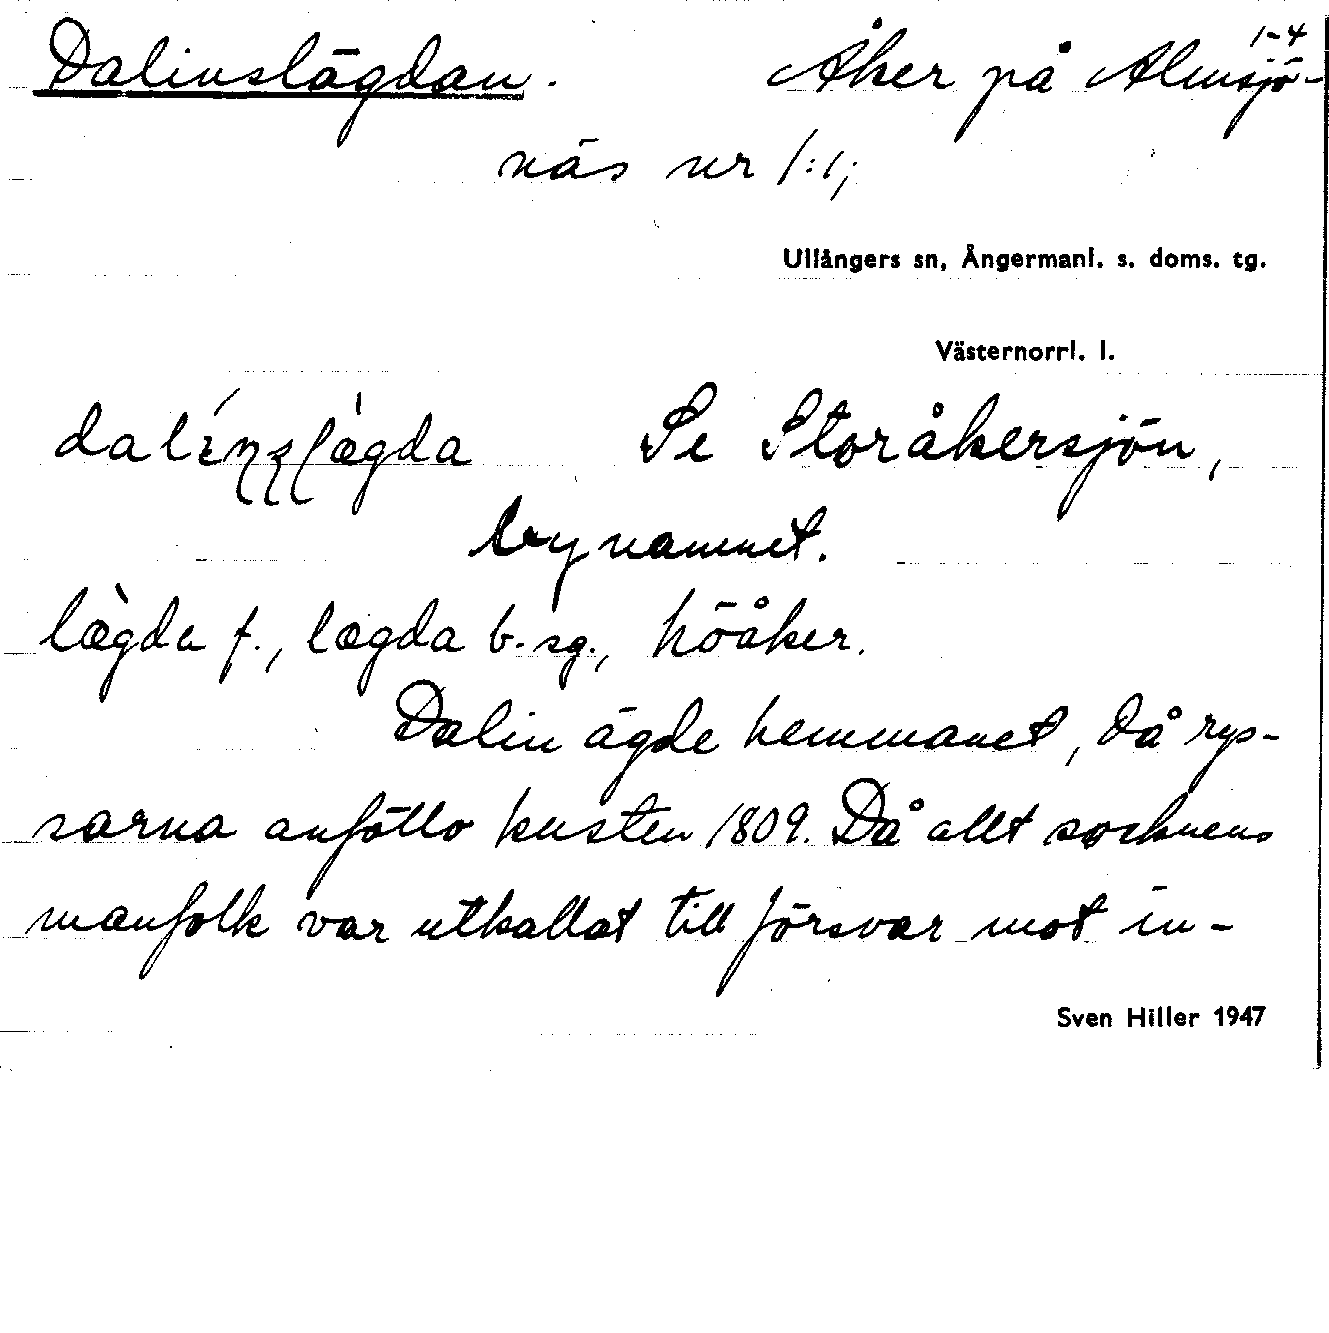 1-4
Dalinslägdan. Åker på Almsjö-
näs nr 1:1;
Ullångers sn, Ångermanl. s. doms. tg.
Västernorrl. l.
Se Storåkersjön,
bynamnet.
lægda f., lægda b. sg., höåker.
Dalin ägde hemmanet, då rys-
sarna anföllo kusten 1809. Då allt socknens
manfolk var utkallat till försvar mot in-
Sven Hiller 1947